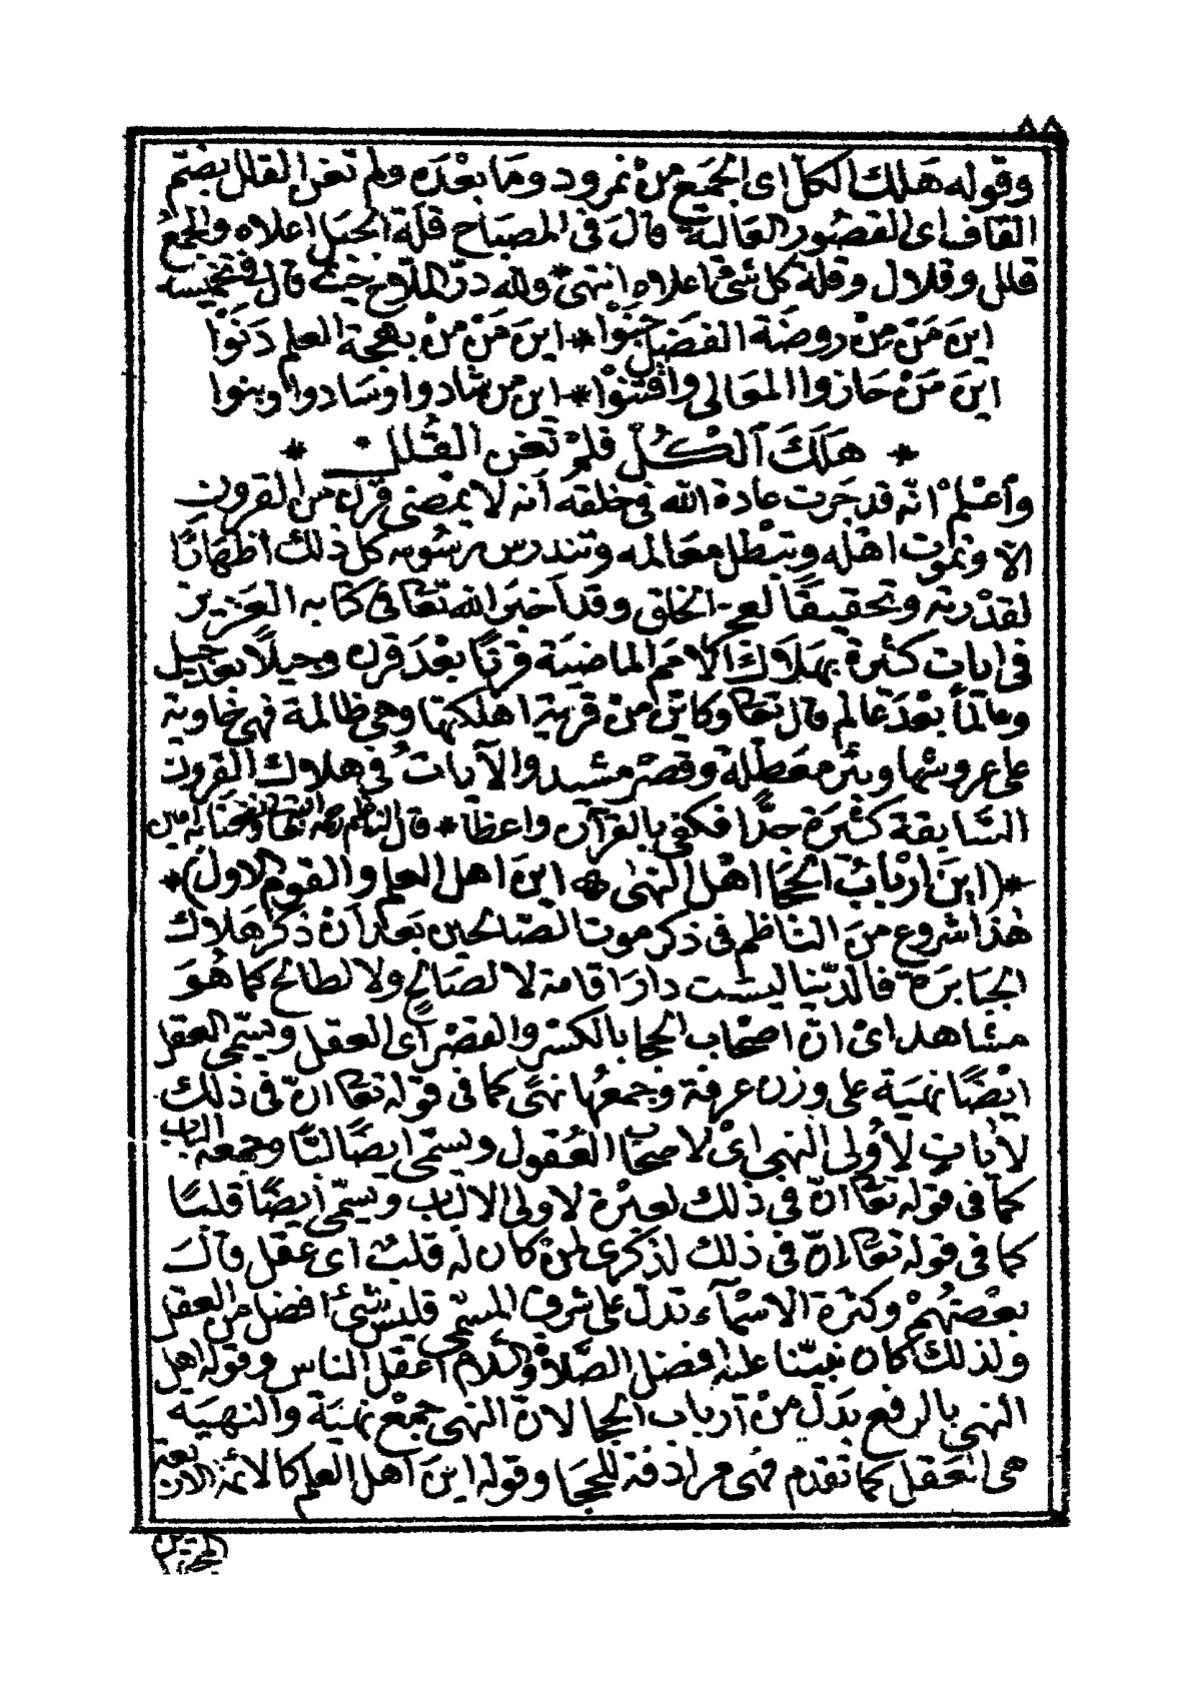 ٨٨
وقوله هلك الكل اى الجميع من نمرود وما بعده ولم تغن القلل بضم
القاف اى القصور العالية قال فى المصباح قلة الجبل اعلاه والجمع
قلل وقلال وقلة كل شئ اعلاه انتهى * ولله در الملاح حيث قال
اين من من روضة الفضل جنوا * اين من من بهجة العلم دنوا
اين من حازوا المعالى واقتنوا * اين من شادوا وسادوا وبنوا
* هلك الكل فلم تغن القلل *
واعلم انه قد جرت عادة الله فى خلقه انه لا يمضى قرن من القرون
الا وتموت اهله وتبطل معالمه وتندرس رسومه كل ذلك اظهارًا
لقدرته وتحقيقًا لعجز الخلق وقد اخبر الله تعالى فى كتابه العزيز
فى ايات كثيرة بهلاك الامم الماضية قرنًا بعد قرن وجيلًا بعد جيل
وعالمًا بعد عالم قال تعالى وكاين من قرية اهلكتها وهى ظالمة فهى خاوية
على عروشها وبئر معطلة وقصر مشيد والآيات فى هلاك القرون
السابقة كثيرة جدًا فكفى بالقرآن واعظًا * قال الناظم رحمه الله تعالى
*(اين ارباب الحجا اهل النهى * اين اهل العلم والقوم الاول)*
هذا شروع من الناظم فى ذكر موت الصالحين بعد ان ذكر هلاك
الجبابرة فالدنيا ليست دار اقامة لا لصالح ولا لطالح كما هو
مشاهد اى ان اصحاب الحجا بالكسر والقصر اى العقل ويسمى العقل
ايضًا نهية على وزن عرفة وجمعها نهى كما فى قوله تعالى ان فى ذلك
لآيات لأولى النهى اى لاصحاب العقول ويسمى ايضًا لبًا وجمعه الباب
كما فى قوله تعالى ان فى ذلك لعبرة لاولى الالباب ويسمى ايضًا قلبًا
كما فى قوله تعالى ان فى ذلك لذكرى لمن كان له قلب اى عقل قال
بعضهم وكثرة الاسماء تدل على شرف المسمى فليس شئ افضل من العقل
ولذلك كان نبينا عليه افضل الصلاة والسلام اعقل الناس وقوله اهل
النهى بالرفع بدل من ارباب الحجا لان النهى جمع نهية والنهية
هى العقل كما تقدم فهى مرادفة للحجا وقوله اين اهل العلم كالائمة الاربعة